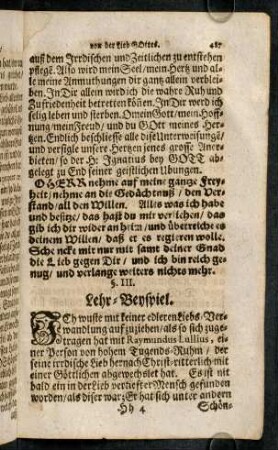 von der Lieb GOttes. 487
auß dem Irrdischen und Zeitlichen zu entstehen
pflegt. Also wird mein Seel / mein Hertz und al-
le meine Anmuthungen dir gantz allein verblei-
ben. In Dir allein wird ich die wahre Ruh und
Zufriedenheit betretten köñen. In Dir werd ich
selig leben und sterben. O mein Gott / mein Hoff-
nung / mein Freud / und du GOtt meines Her-
tzen. Endlich beschliesse alle dise Unterweisungẽ /
und versigle unsere Hertzen jenes grosse Aner-
bieten / so der H: Ignatius bey GOTT ab-
gelegt zu End seiner geistlichen Übungen.
O HERR nehme auf meine gantze Frey-
heit / nehme an die Gedächtnuß / den Ver-
stand / all den Willen. Alles was ich habe
und besitze / das hast du mir verliehen / das
gib ich dir wider anheim / und überreiche es
deinem Willen / daß er es regieren wolle.
Schencke mir nur mit samt deiner Gnad
die Lieb gegen Dir / und ich bin reich ge-
nug / und verlange weiters nichts mehr.
§. III.
Lehr-Beyspiel.
ICh wuste mit keiner edleren Liebs-Ver-
wandlung aufzuziehen / als so sich zuge-
tragen hat mit Raymundus Lullius, ei-
ner Person von hohem Tugends-Ruhm / der
seine irrdische Lieb hernach Christ-ritterlich mit
einer Göttlichen abgewechslet hat. Es ist nit
bald ein in der Lieb verdieffter Mensch gefunden
worden / als diser war; Er hat sich unter andern
Hh 4 Schön-